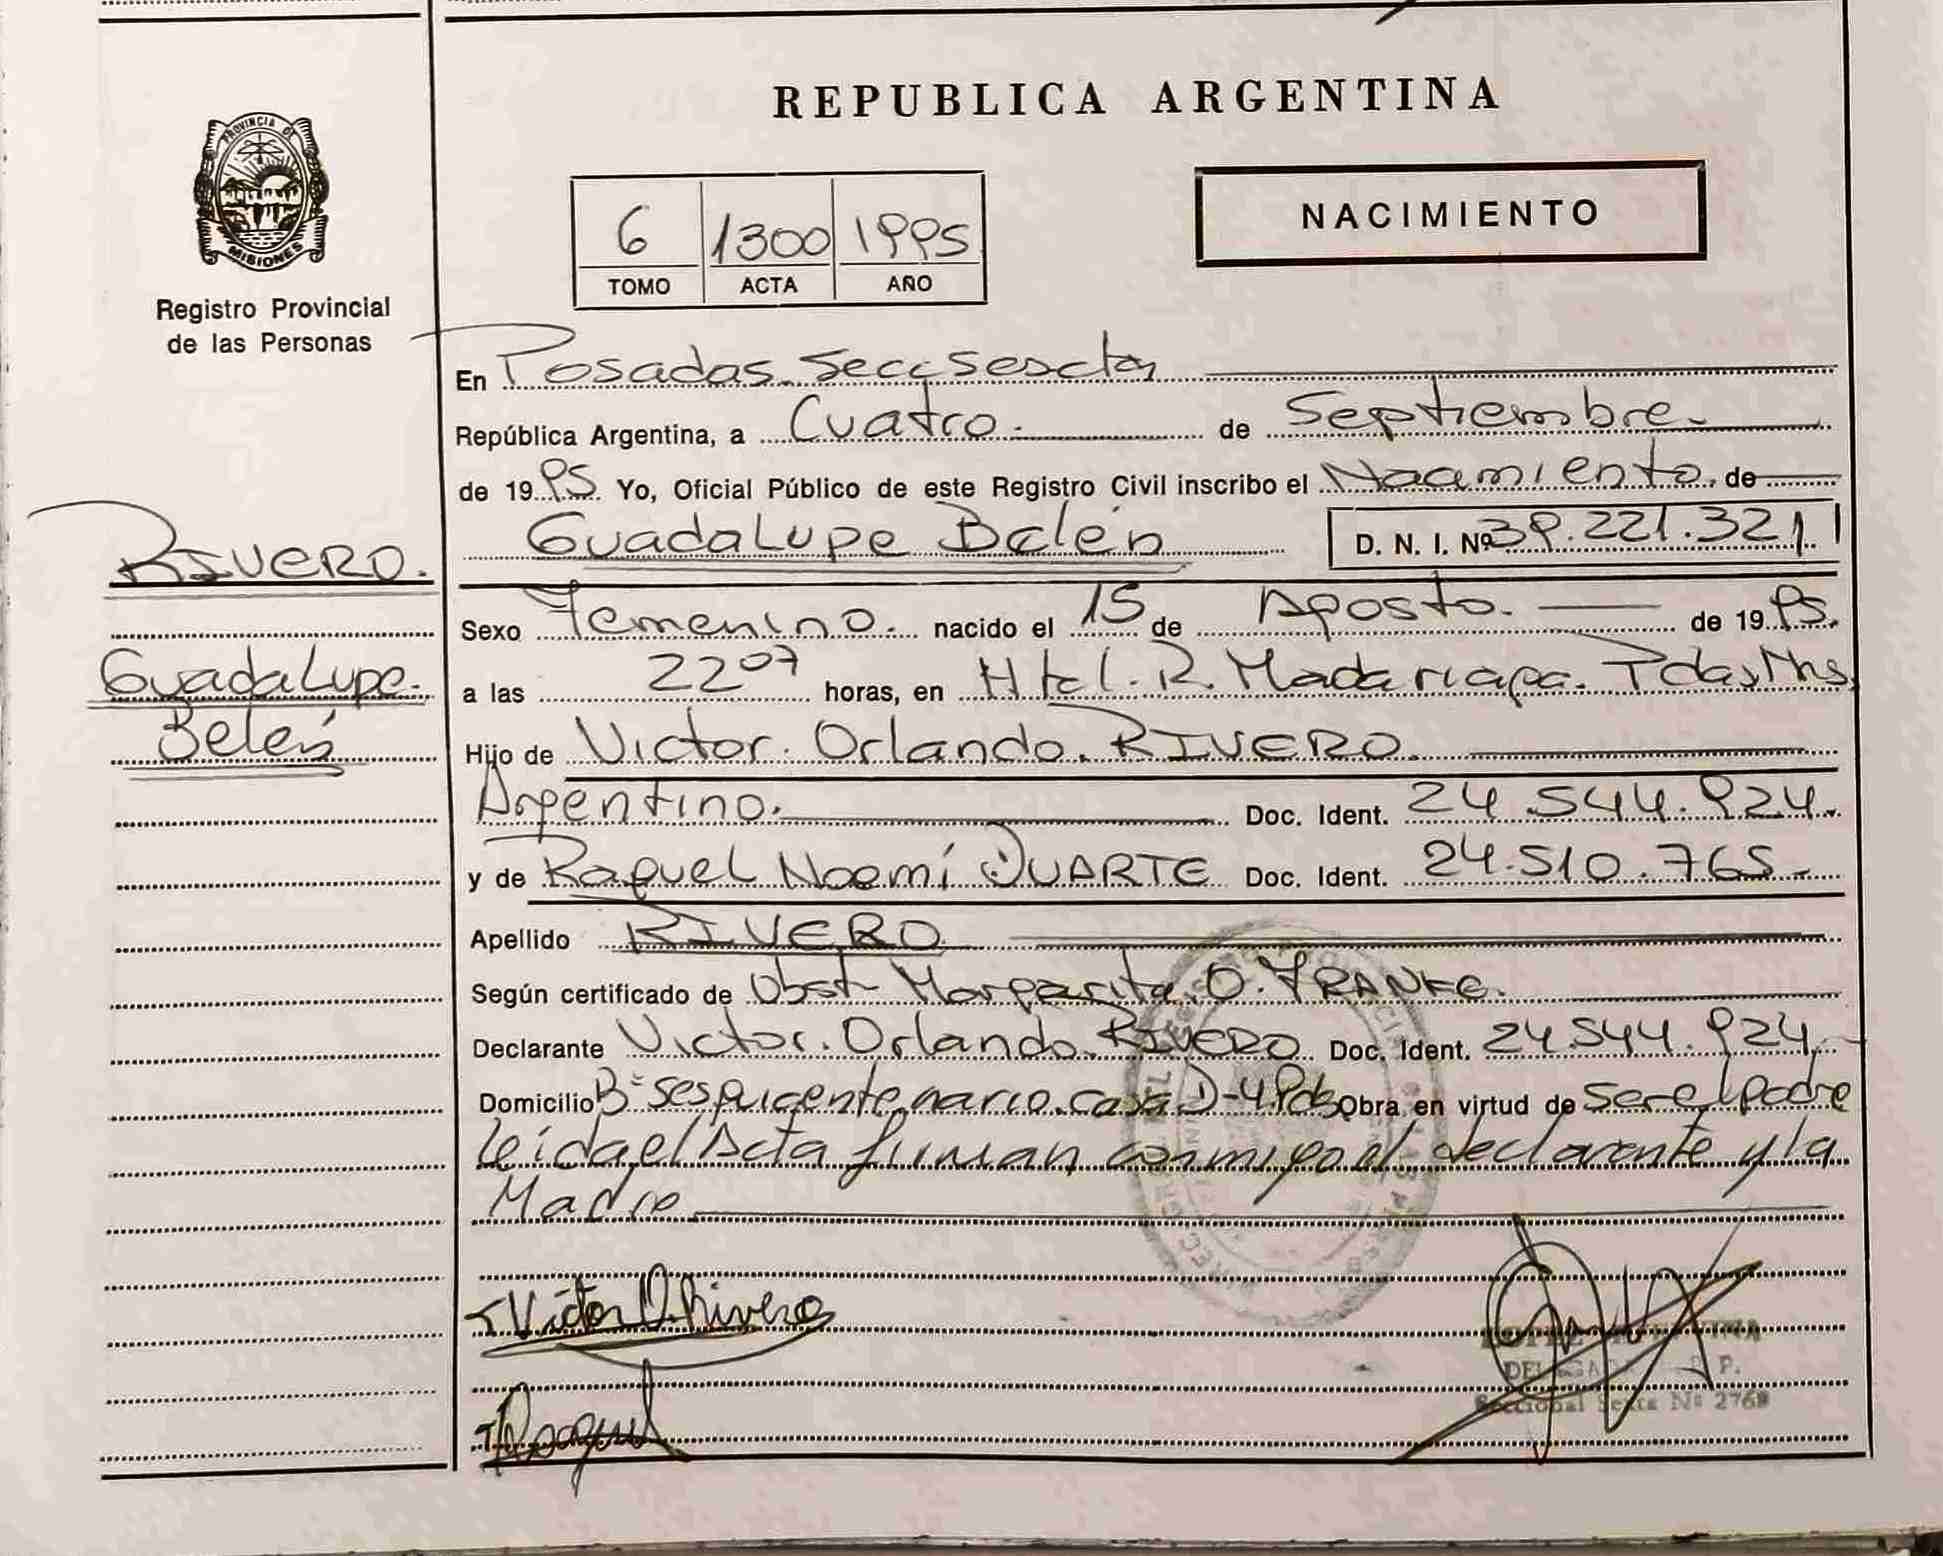 REPUBLICA ARGENTINA
PROVINCIA DE
MISIONES
Registro Provincial
de las Personas
6 1300 1995
TOMO ACTA AÑO
NACIMIENTO
En Posadas. Secc. Sexcta
República Argentina, a Cuatro. de Septiembre.
de 1995 Yo, Oficial Público de este Registro Civil inscribo el Nacimiento. de
RIVERO.
Guadalupe
Belén
Guadalupe Belén D. N. I. Nº 39.221.321
Sexo Femenino. nacido el 15 de Agosto. de 1995.
a las 22 07 horas, en Htal. R. Madariaga. Pdas, Mns.
Hijo de Victor. Orlando. RIVERO.
Argentino. Doc. Ident. 24.544.924.
y de Raquel Noemí DUARTE Doc. Ident. 24.510.765.
Apellido RIVERO
Según certificado de Obst. Margarita. O. FRANKE.
Declarante Victor. Orlando. RIVERO Doc. Ident. 24.544.924.
Domicilio Bº Sesquicentenario. Casa D-4. Pdas Obra en virtud de ser el padre
leida el Acta firman conmigo el declarante y la
Madre
Victor O. Rivero
Raquel
Seccional Sexta Nº 2769